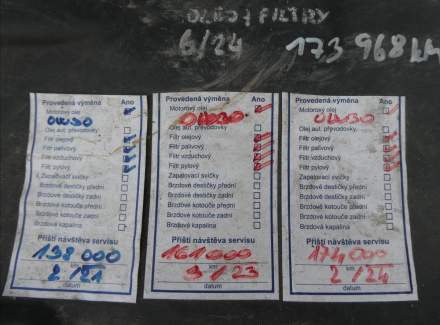 OLEJ + FILTRY
6/24 173 968 km
Provedená výměna Ano
Motorový olej
0W30
Olej aut. převodovky
Filtr olejový
Filtr palivový
Filtr vzduchový
Filtr pylový
Zapalovací svíčky
Brzdové destičky přední
Brzdové destičky zadní
Brzdové kotouče přední
Brzdové kotouče zadní
Brzdová kapalina
Příští návštěva servisu
138 000
km
2/21
datum
Provedená výměna Ano
Motorový olej
0W30
Olej aut. převodovky
Filtr olejový
Filtr palivový
Filtr vzduchový
Filtr pylový
Zapalovací svíčky
Brzdové destičky přední
Brzdové destičky zadní
Brzdové kotouče přední
Brzdové kotouče zadní
Brzdová kapalina
Příští návštěva servisu
161 000
km
9/23
datum
Provedená výměna Ano
Motorový olej
0W30
Olej aut. převodovky
Filtr olejový
Filtr palivový
Filtr vzduchový
Filtr pylový
Zapalovací svíčky
Brzdové destičky přední
Brzdové destičky zadní
Brzdové kotouče přední
Brzdové kotouče zadní
Brzdová kapalina
Příští návštěva servisu
174 000
km
2/24
datum